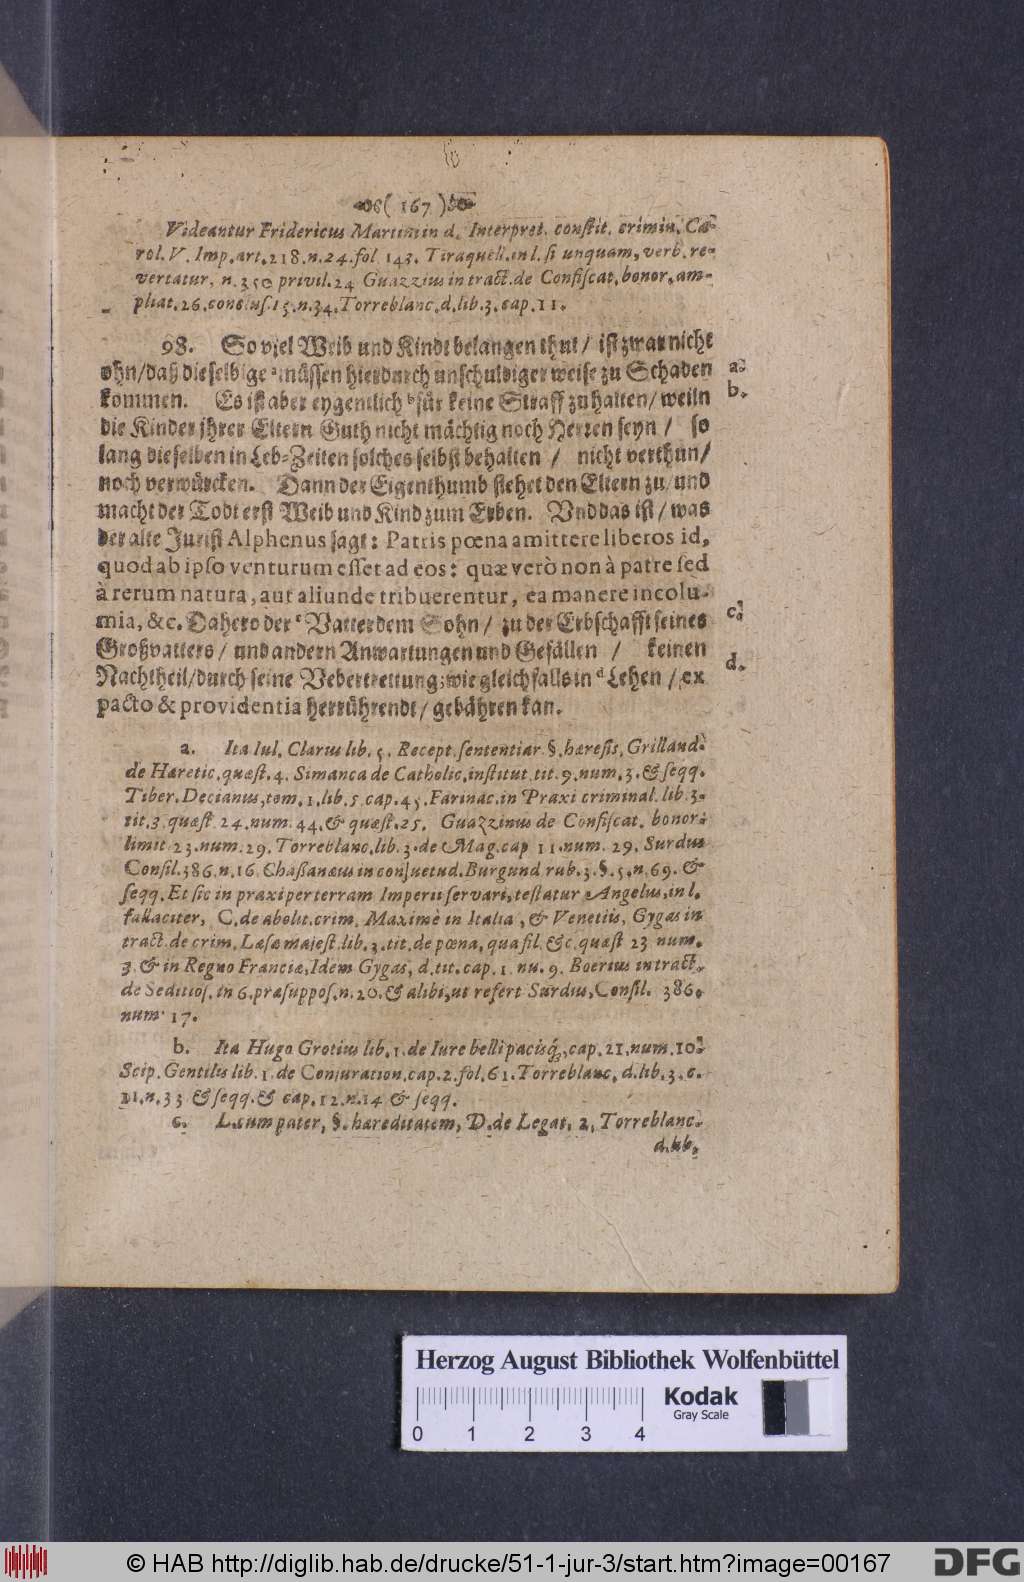 ( 167 )
Videantur Fridericus Martini in d. Interpret. constit. crimin. Ca-
rol. V. Imp. art. 218. n. 24. fol. 143. Tiraquell. in l. si unquam, verb. re-
vertatur, n. 350 privil. 24 Guazzius in tract. de Confiscat. bonor. am-
pliat. 26. conclus. 15. n. 34. Torreblanc. d. lib. 3. cap. 11.
98. So viel Weib und Kindt belangen thut / ist zwar nicht
ohn / daß dieselbige ª müssen hierdurch unschuldiger weise zu Schaden
a.
kommen. Es ist aber eygentlich ᵇ für keine Straff zu halten / weiln
b.
die Kinder jhrer Eltern Guth nicht mächtig noch Herren seyn / so
lang dieselben in Leb-Zeiten solches selbst behalten / nicht verthun /
noch verwürcken. Dann der Eigenthumb stehet den Eltern zu / und
macht der Todt erst Weib und Kind zum Erben. Und das ist / was
der alte Jurist Alphenus sagt: Patris pœna amittere liberos id,
quod ab ipso venturum esset ad eos: quæ verò non à patre sed
à rerum natura, aut aliunde tribuerentur, ea manere incolu-
mia, &c. Dahero der ᶜ Vatter dem Sohn / zu der Erbschafft seines
c.
Großvatters / und andern Anwartungen und Gefällen / keinen
Nachtheil / durch seine Uebertrettung; wie gleichfalls in ᵈ Lehen / ex
d.
pacto & providentia herrührendt / gebähren kan.
a. Ita Iul. Clarus lib. 5. Recept. sententiar. §. hæresis, Grilland.
de Hæretic. quæst. 4. Simanca de Catholic. institut. tit. 9. num. 3. & seqq.
Tiber. Decianus, tom. 1. lib. 5 cap. 45. Farinac. in Praxi criminal. lib. 3.
tit. 3 quæst. 24. num. 44. & quæst. 25. Guazzinus de Confiscat. bonor.
limit 23. num. 29. Torreblanc. lib. 3. de Mag. cap 11. num. 29. Surdus
Consil. 386. n. 16 Chaßanæus in consuetud. Burgund rub. 3. §. 5. n. 69. &
seqq. Et sic in praxi per terram Imperii servari, testatur Angelus, in l.
fallaciter, C. de abolit. crim. Maximè in Italia, & Venetiis, Gygas in
tract. de crim. Læsæ majest. lib. 3. tit. de pœna, qua fil. &c. quæst 23 num.
3. & in Regno Franciæ, Idem Gygas, d. tit. cap. 1. nu. 9. Boerius in tract.
de Seditios. in 6. præsuppos. n. 20. & alibi, ut refert Surdus, Consil. 386.
num. 17.
b. Ita Hugo Grotius lib. 1. de Iure belli pacisq́;, cap. 21. num. 10.
Scip. Gentilis lib. 1. de Conjuration. cap. 2. fol. 61. Torreblanc. d. lib. 3. c.
11. n. 33 & seqq. & cap. 12. n. 14 & seqq.
c. L. cum pater, §. hæreditatem, D. de Legat. 2, Torreblanc.
d. lib.
Herzog August Bibliothek Wolfenbüttel
Kodak
Gray Scale
0 1 2 3 4
© HAB http://diglib.hab.de/drucke/51-1-jur-3/start.htm?image=00167
DFG